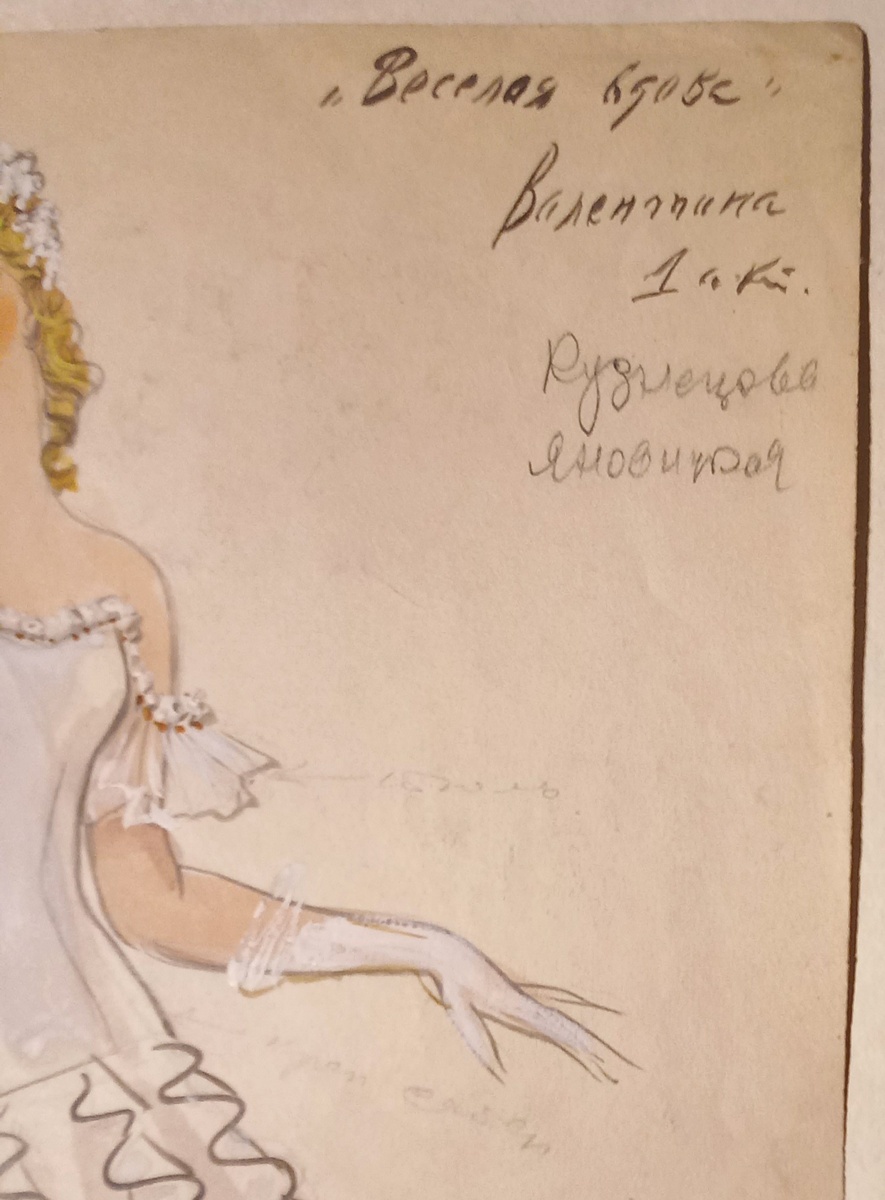 „Веселая вдова"
Валентина
1 акт.
Кузнецова
Яновицкая